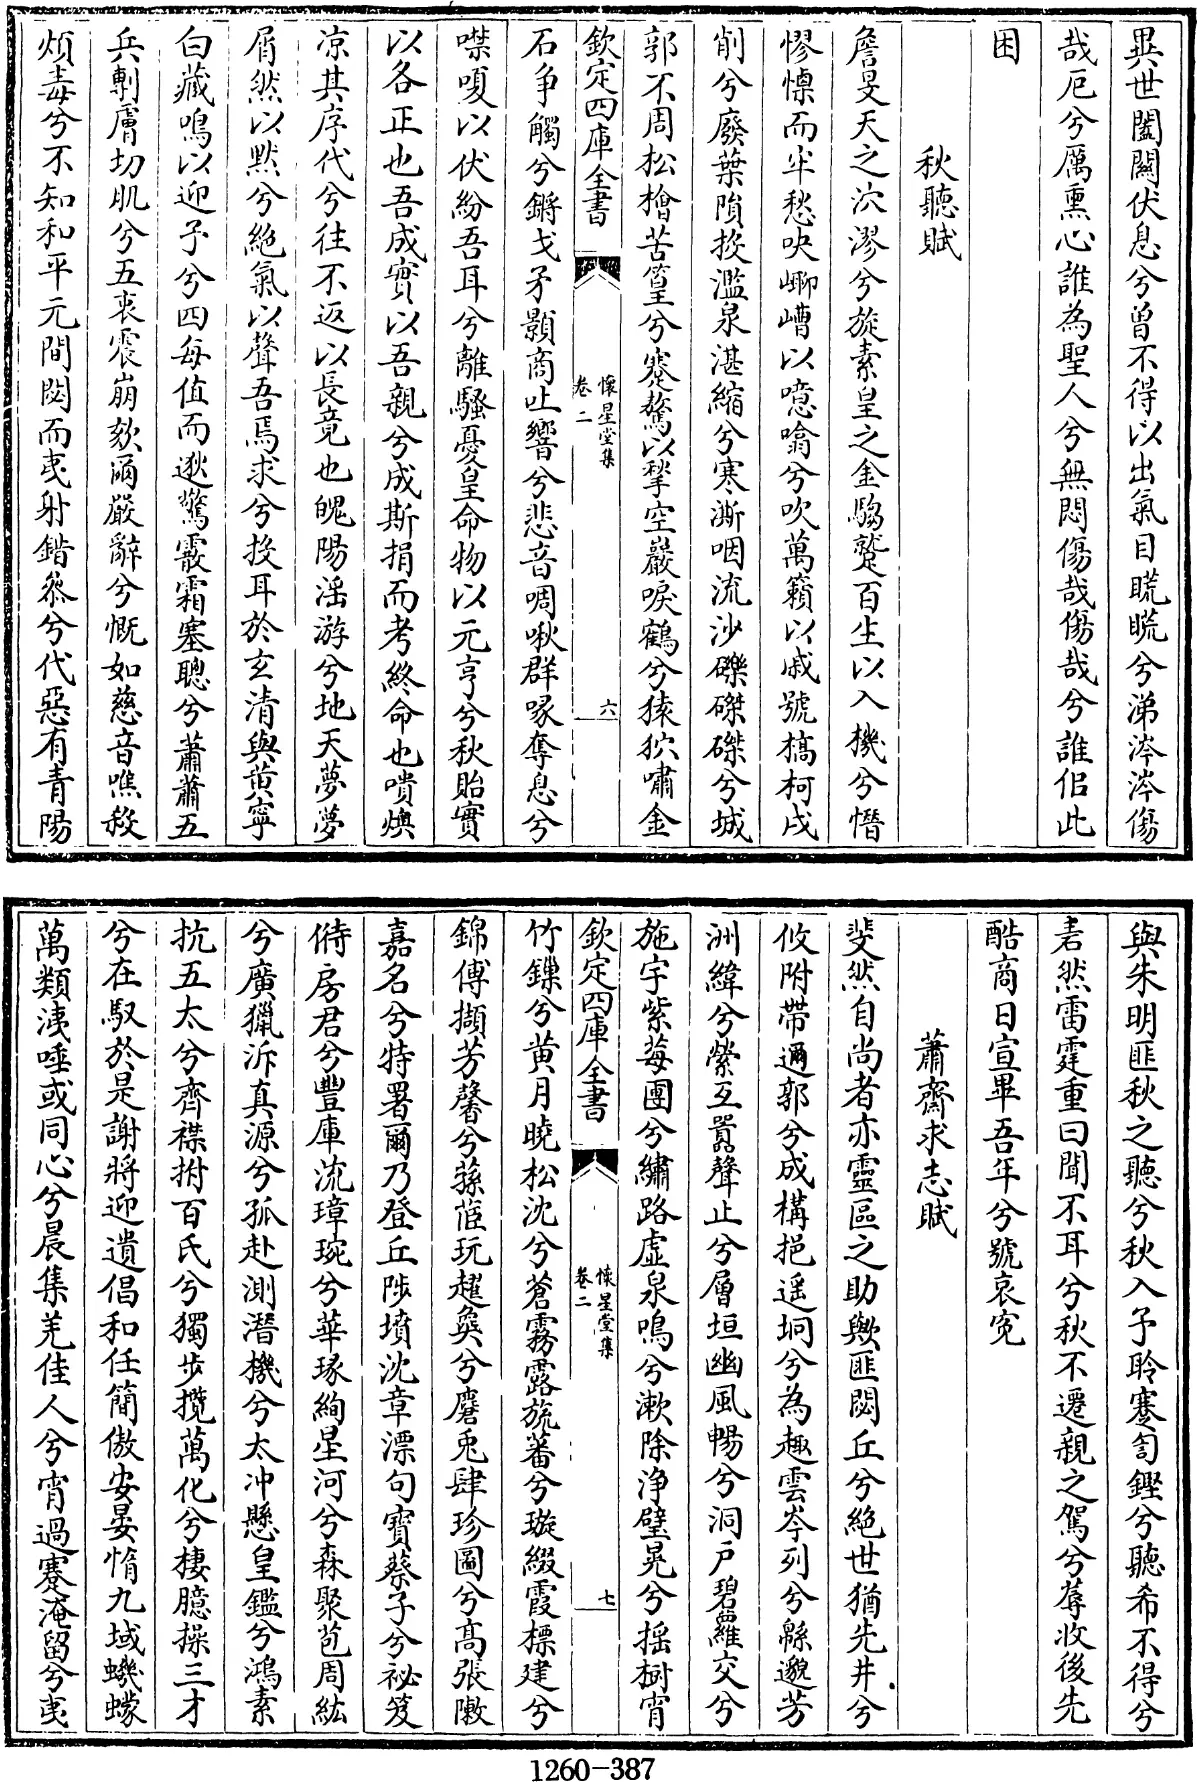 異世闔闢伏息兮曽不得以出氣目䀮䀮兮涕涔涔傷
哉厄兮厲熏心誰為聖人兮無悶傷哉傷哉兮誰佀此
困
秋聽賦
詹旻天之泬漻兮旋素皇之金騶蹵百生以入機兮憯
憀慄而半愁吷嘟嘈以噫噏兮吹萬籟以戚號槁柯戍
削兮廢葉隕投濫泉湛縮兮寒澌咽流沙礫磔磔兮城
郭不周松檜苦篁兮蹇騖以拏空巖唳鶴兮猿狖嘯金
欽定四庫全書
懷星堂集
卷二
六
石争觸兮鏘戈矛顥商吐響兮悲音啁啾群喙奪息兮
噤嗄以伏紛吾耳兮離騷憂皇命物以元亨兮秋貽實
以各正也吾成實以吾親兮成斯捐而考終命也嘳燠
凉其序代兮往不返以長竟也魄陽滛游兮地天夢夢
屑然以黙兮絶氣以聲吾焉求兮投耳於玄清與黄寜
白藏鳴以迎予兮四每值而逖驚霰霜塞聰兮蕭蕭五
兵剸膚切肌兮五衷震崩欬爾嚴辭兮慨如慈音噍殺
煩毒兮不知和平元間閟而夷射錯欱兮代惡有青陽
與朱明匪秋之聽兮秋入予聆蹇訇鏗兮聽希不得兮
砉然雷霆重曰聞不耳兮秋不遷親之駕兮蓐收後先
酷商日宣畢吾年兮號哀寃
蕭齋求志賦
斐然自尚者亦靈區之助歟匪閟丘兮絶世猶先井兮
攸附帶邇郭兮成構挹遥坰兮為趣雲岑列兮緜邈芳
洲緯兮縈互囂聲止兮層垣幽風暢兮洞戸碧蘿交兮
施宇紫莓團兮繡路虚泉鳴兮漱除浄壁晃兮揺樹宵
欽定四庫全書
懷星堂集
卷二
七
竹鏁兮黄月曉松沈兮蒼霧露旒蕃兮璇綴霞標建兮
錦傅擷芳馨兮蓀茝玩趯㚟兮麕兎肆珍圖兮髙張敶
嘉名兮特署爾乃登丘陟墳沈章漂句寶蔡子兮祕笈
偫房君兮豐庫沆璋琬兮華琢絢星河兮森聚苞周紘
兮廣獵泝真源兮孤赴測潛機兮太沖懸皇鑑兮鴻素
抗五太兮齊襟拊百氏兮獨步攬萬化兮棲臆操三才
兮在馭於是謝將迎遺倡和任簡傲安晏惰九域蠛蠓
萬類洟唾或同心兮晨集羌佳人兮宵過蹇淹留兮夷
1260-387